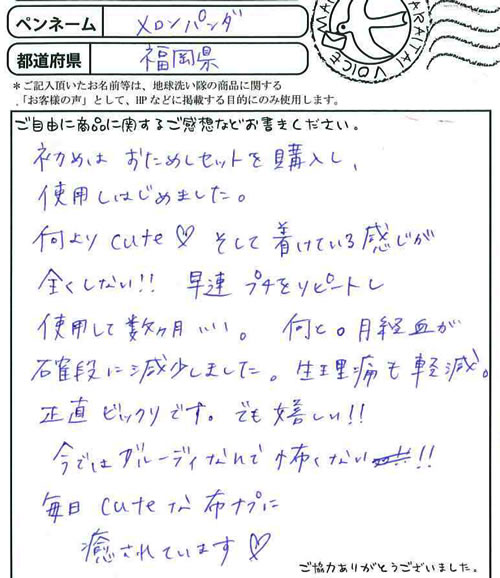 ペンネーム メロンパンダ
都道府県 福岡県
*ご記入頂いたお名前等は、地球洗い隊の商品に関する
「お客様の声」として、HPなどに掲載する目的にのみ使用します。
ご自由に商品に関するご感想などお書きください。
初めは おためしセットを購入し、
使用しはじめました。
何より cute♡ そして着けている感じが
全くしない!! 早速 プチをリピートし
使用して数ヶ月…。 何と。月経血が
確段に減少しました。生理痛も軽減。
正直ビックリです。でも嬉しい!!
今ではブルーディなんて怖くない!!
毎日 cuteな布ナプに
癒されています♡
ご協力ありがとうございました。